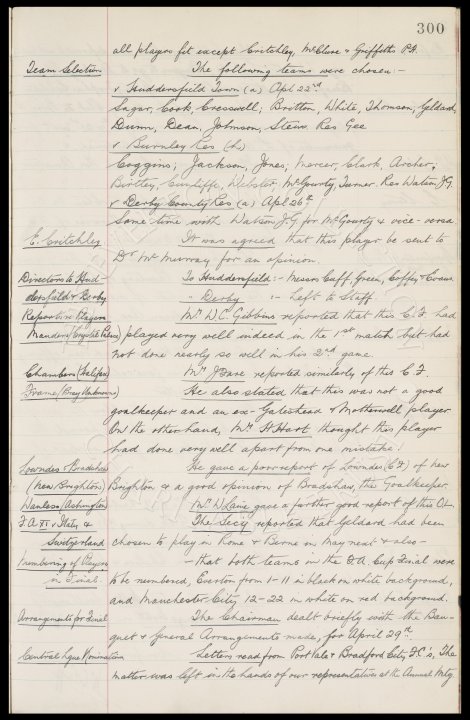 300
all players fit except Critchley, McClure & Griffiths P.H.
Team Selection The following teams were chosen:-
v Huddersfield Town (a) Apl 22nd
Sagar, Cook, Cresswell; Britton, White, Thomson; Geldard,
Dunn, Dean, Johnson, Stein. Res Gee
v Burnley Res (h)
Coggins; Jackson, Jones; Mercer, Clark, Archer;
Birtley, Cunliffe, Webster, McGourty, Turner. Res Watson J.G.
v Derby County Res (a) Apl 26th
Same time with Watson J.G for McGourty & vice-versa
E. Critchley It was agreed that this player be sent to
Dr McMurray for an opinion.
Directors to Hud- To Huddersfield:- Messrs Cuff, Green, Coffey & Evans
dersfield & Derby " Derby :- Left to Staff.
Reports re Players Mr W.C. Gibbins reported that this C.F. had
Manders (Crystal Palace) played very well indeed in the 1st match but had
not done nearly so well in his 2nd game.
Chambers (Halifax) Mr reported similarly of this C.F.
Frame (Bray Unknowns) He also stated that this was not a good
goalkeeper and an ex-Gateshead & Motherwell player
On the other hand, Mr A Hart thought this player
had done very well apart from one mistake!
Lowndes & Bradshaw He gave a poor report of Lowndes (C.F) of New
(New Brighton) Brighton & a good opinion of Bradshaw, the Goalkeeper.
Wanless/Ashington Mr W Lane gave a further good report of this O.L.
F.A XI v Italy & The Secy reported that Geldard had been
Switzerland chosen to play in Rome & Berne in May next & also -
Numbering of Players - that both teams in the F.A Cup Final were
in Final to be numbered, Everton from 1-11 in black on white background,
and Manchester City 12-22 in white on red background.
Arrangements for Final The Chairman dealt briefly with the Ban-
quet & General Arrangements made, for April 29th.
Central Lgue Nomination Letters read from Port Vale & Bradford City F.C's. The
matter was left in the hands of our representatives at the Annual Mtg.